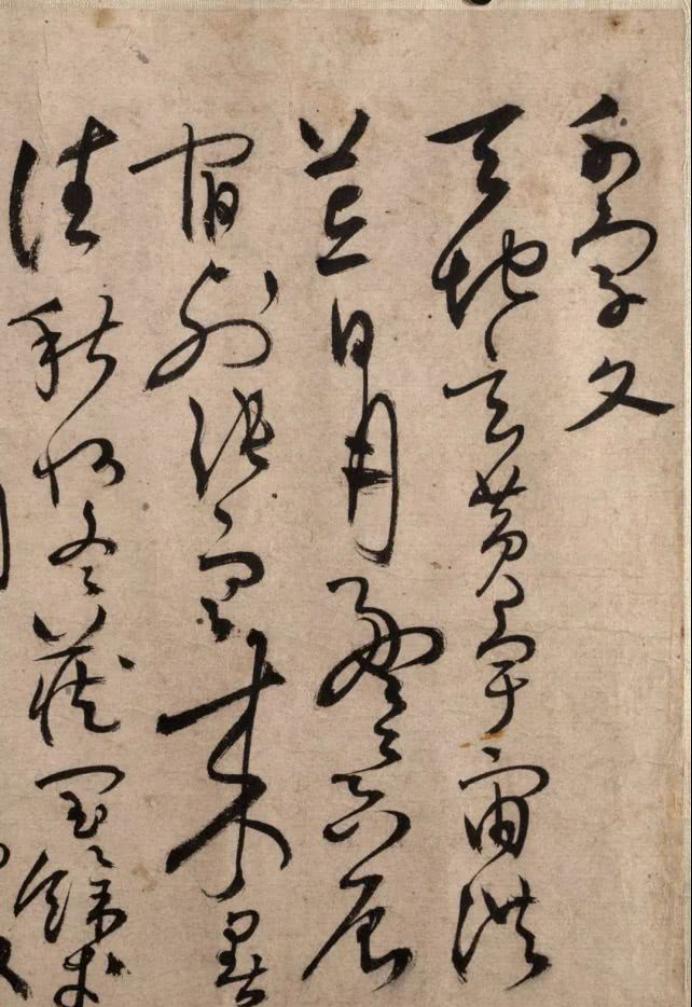 千字文
天地玄黄宇宙洪
荒日月盈昃辰
宿列張寒來暑
往秋收冬藏閏餘成